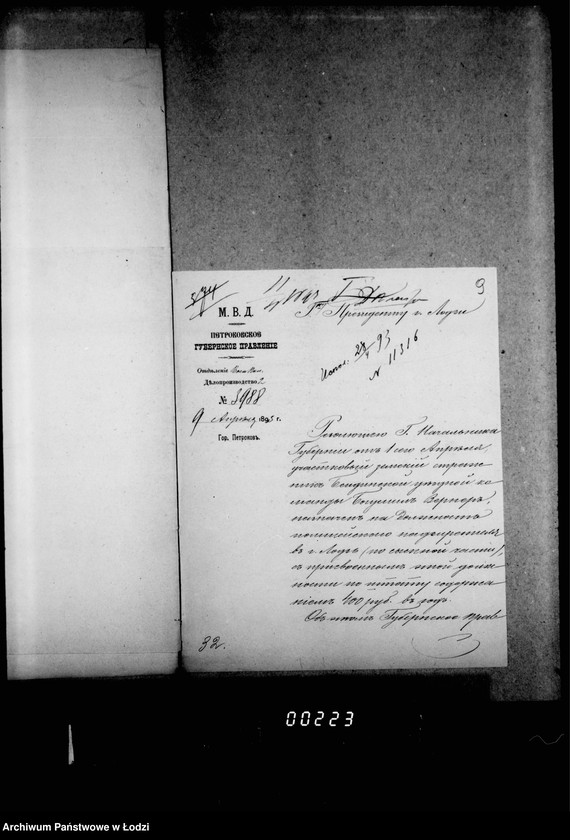 9
М. В. Д.
ПЕТРОКОВСКОЕ
ГУБЕРНСКОЕ ПРАВЛЕНІЕ
Отдѣленіе
Дѣлопроизводство 2
№ 3988
9 Апрѣля 1893 г.
Гор. Петроковъ.
Гну Президенту г. Лодзи
Испол. 28/4 93
№ 11316
Резолюціею Г. Начальника
Губерніи отъ 1 сего Апрѣля,
участковый земскій страж-
никъ Бендинской уѣздной ко-
манды Вернеръ,
назначенъ на должность
полицейскаго надзирателя
въ г. Лодзь (по сыскной части),
съ присвоеннымъ этой долж-
ности по штату содержа-
ніемъ 400 руб. въ годъ.
Объ этомъ Губернское Прав-
32.
00223
Archiwum Państwowe w Łodzi